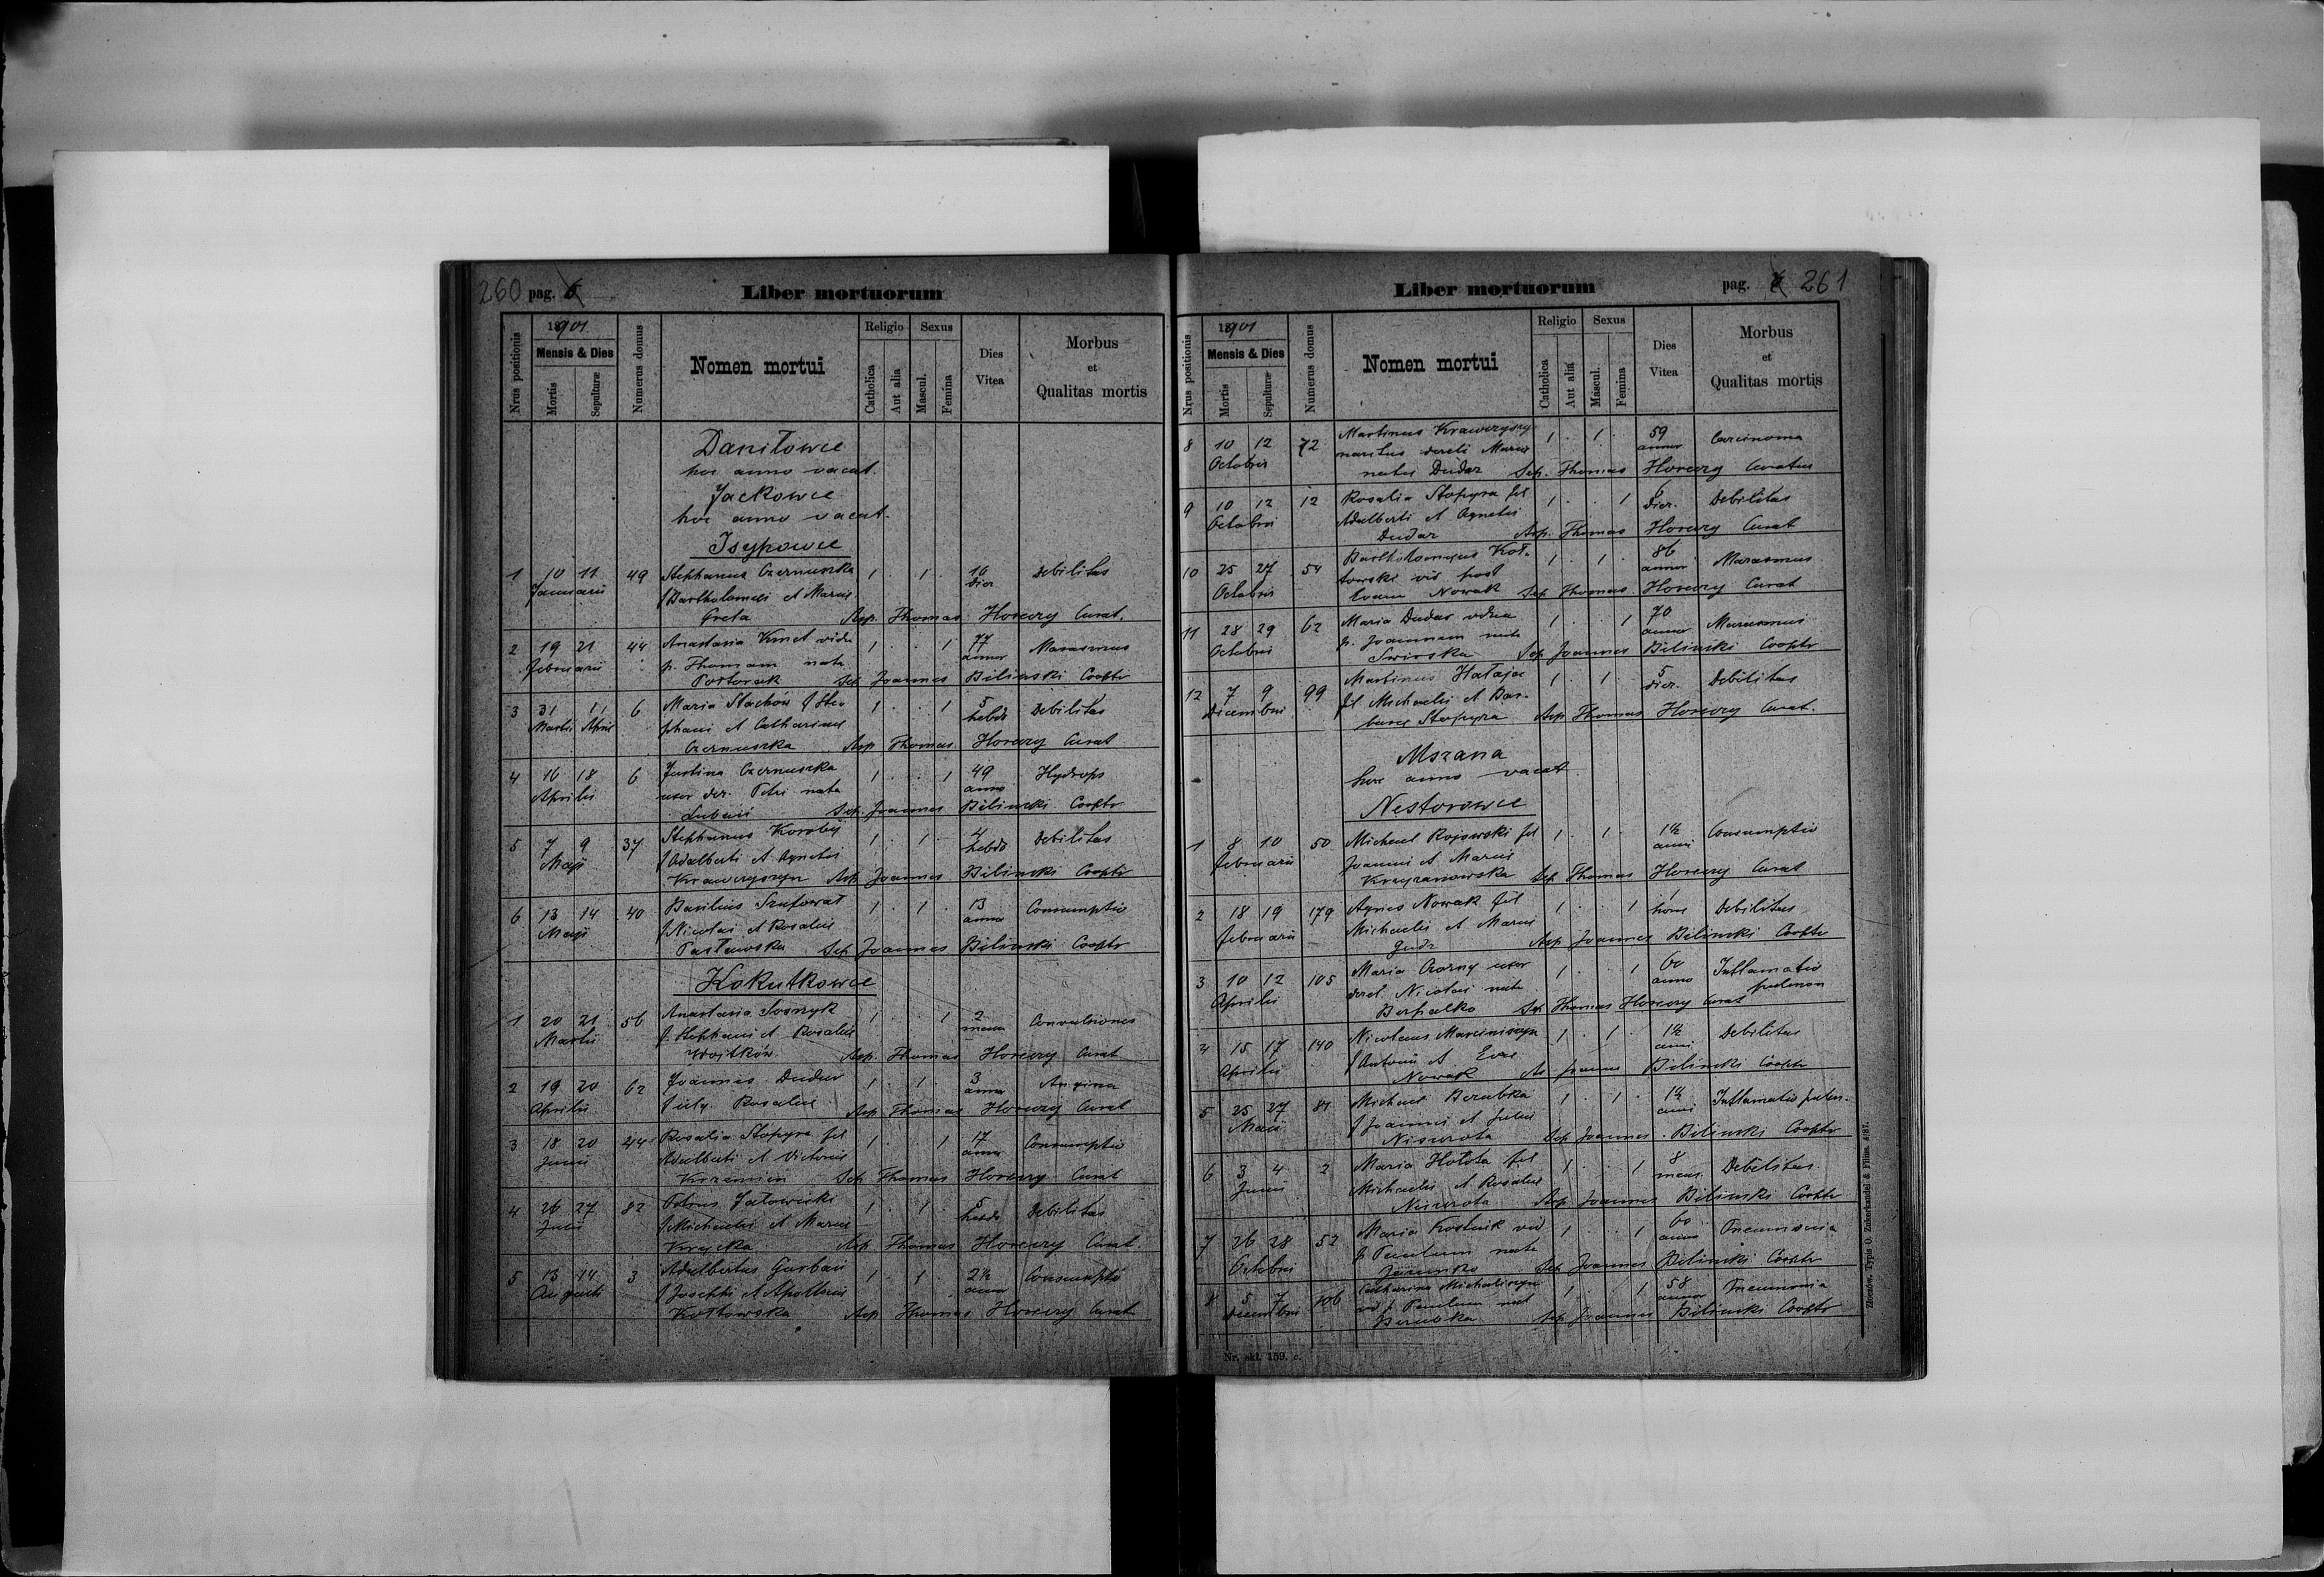 260 pag. 6
Liber mortuorum
Nrus positionis
1901
Mensis & Dies
Mortis
Sepulturæ
Numerus domus
Nomen mortui
Religio
Catholica
Aut alia
Sexus
Mascul.
Femina
Dies
Vitea
Morbus
et
Qualitas mortis
Daniłowce
hoc anno vacat.
Jackowce
hoc anno vacat.
Isypowce
1 10 11 49 Stephanus Czernuszka 1 . 1 . 16 Debilitas
Januarii f Bartholomaei et Mariae dier
Greta Sep. Thomas Horeczy Curat.
2 19 21 44 Anastasia Kmet vidu 1 . . 1 77 Marasmus
Februarii p. Thomam nata annor
Półtorak Sep. Joannes Bilinski Cooptr
3 31 1/ 6 Maria Stachów f Ste- 1 . . 1 5 Debilitas
Martii April phani et Catharinae hebdo
Czernuszka Sep Thomas Horeczy Curat
4 16 18 6 Justina Czernuszka 1 . . 1 49 Hydrops
Aprilis uxor der. Petri nata anno
Sep. Joannes Bilinski Cooptr
5 7 9 37 Stephanus Korobij 1 . 1 . 4 Debilitas
Maji f Adalberti et Agnetis hebdo
Krawczyszyn Sep Joannes Bilinski Cooptr
6 13 14 40 Basilius Szutował 1 . 1 . 13 Consumptio
Maji f Nicolai et Rosaliae anno
Pastawska Sep Joannes Bilinski Cooptr
Kokutkowce
1 20 21 56 Anastasia Sosnzyk 1 . . 1 2 Convulsiones
Martii f. Stephani et Rosaliae mens
Wojtków Sep. Thomas Horeczy Curat
2 19 20 62 Joannes Dudar 1 . 1 . 3 Angina
Aprilis f illg. Rosaliae anno
Sep Thomas Horeczy Curat
3 18 20 244 Rosalia Stopyra fil 1 . . 1 17 Consumptio
Junii Adalberti et Victoriae anno
Krzemien Sep Thomas Horeczy Curat
4 26 27 82 Petrus Jałowicki 1 . 1 . 5 Debilitas
Julii f Michaelis et Mariae hebdo
Krycka Sep Thomas Horeczy Curat.
5 13 14 3 Adalbertus Garban 1 . 1 . 2½ Consumptio
Augusti f Josephi et Apolloniae anno
Kotkowska Sep Thomas Horeczy Curat
Liber mortuorum
pag. 261
Nrus positionis
1901
Mensis & Dies
Mortis
Sepulturæ
Numerus domus
Nomen mortui
Religio
Catholica
Aut aliá
Sexus
Mascul.
Femina
Dies
Vitea
Morbus
et
Qualitas mortis
8 10 12 72 Martinus Krawczyszyn 1 . 1 . 59 Carcinoma
Octobris maritus dereli Mariae annor
natae Dudar Sep. Thomas Horeczy Curatus
9 10 12 12 Rosalia Stopyra fil 1 . . 1 6 Debilitas
Octobris Adalberti et Agnetis dier.
Dudar Sep. Thomas Horeczy Curat
10 25 27 54 Bartholomaeus Koł- 1 . 1 . 86 Marasmus
Octobris towski vid post annor
Nowak Sep Thomas Horeczy Curat
11 28 29 62 Maria Dudar vidua 1 . . 1 70 Marasmus
Octobris p. Joannem nata annor
Swirska Sep Joannes Bilinski Cooptr
12 7 9 99 Martinus Hałaja 1 . 1 . 5 Debilitas
Decembris fil Michaelis et Bar- dier.
barae Stopyra Sep Thomas Horeczy Curat.
Mszana
hoc anno vacat
Nestorowce
1 8 10 50 Michael Rojowski fil 1 . 1 . 1½ Consumptio
Februarii Joannis et Mariae anni
Krzyzanowska Sep Thomas Horeczy Curat
2 18 19 179 Agnes Nowak fil 1 . . 1 1 Debilitas
Februarii Michaelis et Mariae horae
Gudz Sep Joannes Bilinski Cooptr
3 10 12 105 Maria Czorny uxor 1 . . 1 60 Inflamatio
Aprilis derel. Nicolai nata anno pulmon
Berhalko Sep Thomas Horeczy Curat
4 15 17 140 Nicolaus Marciniszyn 1 . 1 . 1½ Debilitas
Aprilis f Antonii et Evae anni
Nowak Sep Joannes Bilinski Cooptr
5 25 27 84 Michael Berubka 1 . 1 . 1½ Inflamatio pulm.
Maii f Joannis et Juliae anni
Niswrota Sep Joannes Bilinski Cooptr
6 3 4 2 Maria Hołota fil 1 . . 1 8 Debilitas
Junii Michaelis et Rosaliae mens.
Niswrota Sep Joannes Bilinski Cooptr
7 26 28 52 Maria Kostuik vid 1 . . 1 60 Pneumonia
Octobris p. Paulum nata anno
Sep Joannes Bilinski Cooptr
8 5 7 106 Catharina Michaliszyn 1 . . 1 58 Pneumonia
Decembris vid p. Paulum nat annor
Berubka Sep Joannes Bilinski Cooptr
Nr. skł. 159. c.
Złoczów. Typis O. Zukerkandel & Filius. 4/87.